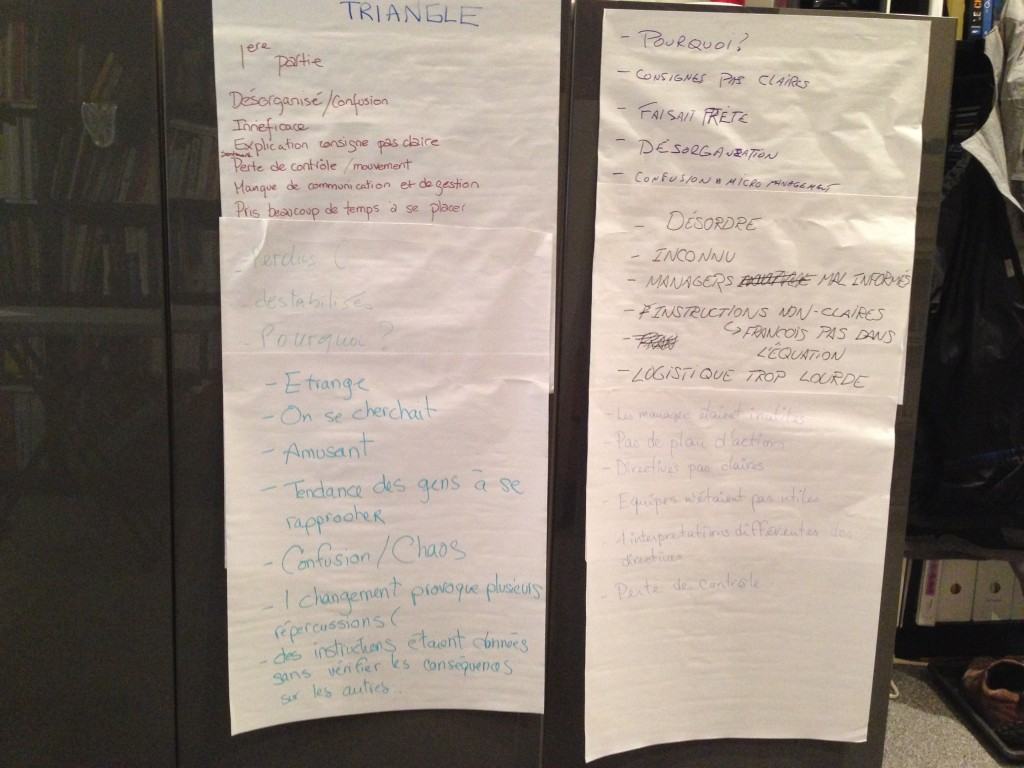 TRIANGLE
1ere partie
Désorganisé/confusion
Inneficace
Explication consigne pas claire
Perte de contrôle / mouvement
Manque de communication et de gestion
Pris beaucoup de temps à se placer
- Perdus (
déstabilisés
- Pourquoi?
- Etrange
- On se cherchait
- Amusant
- Tendance des gens à se
rapprocher
- Confusion/Chaos
- 1 changement provoque plusieurs
répercussions (
- des instructions étaient données
sans vérifier les conséquences
sur les autres..
- POURQUOI?
- CONSIGNES PAS CLAIRES
- FAISAIT PITÉ
- DÉSORGANISATION
- CONFUSION MICRO MANAGEMENT
- DÉSORDRE
- INCONNU
- MANAGERS MAL INFORMÉS
- INSTRUCTIONS NON-CLAIRES
↳ FRANCOIS PAS DANS
L'ÉQUATION
- LOGISTIQUE TROP LOURDE
- Les managers étaient inutiles
- Pas de plan d'actions
- Directives pas claires
- Equipes n'étaient pas utiles
- interpretations différentes des
directives
- Perte de contrôle